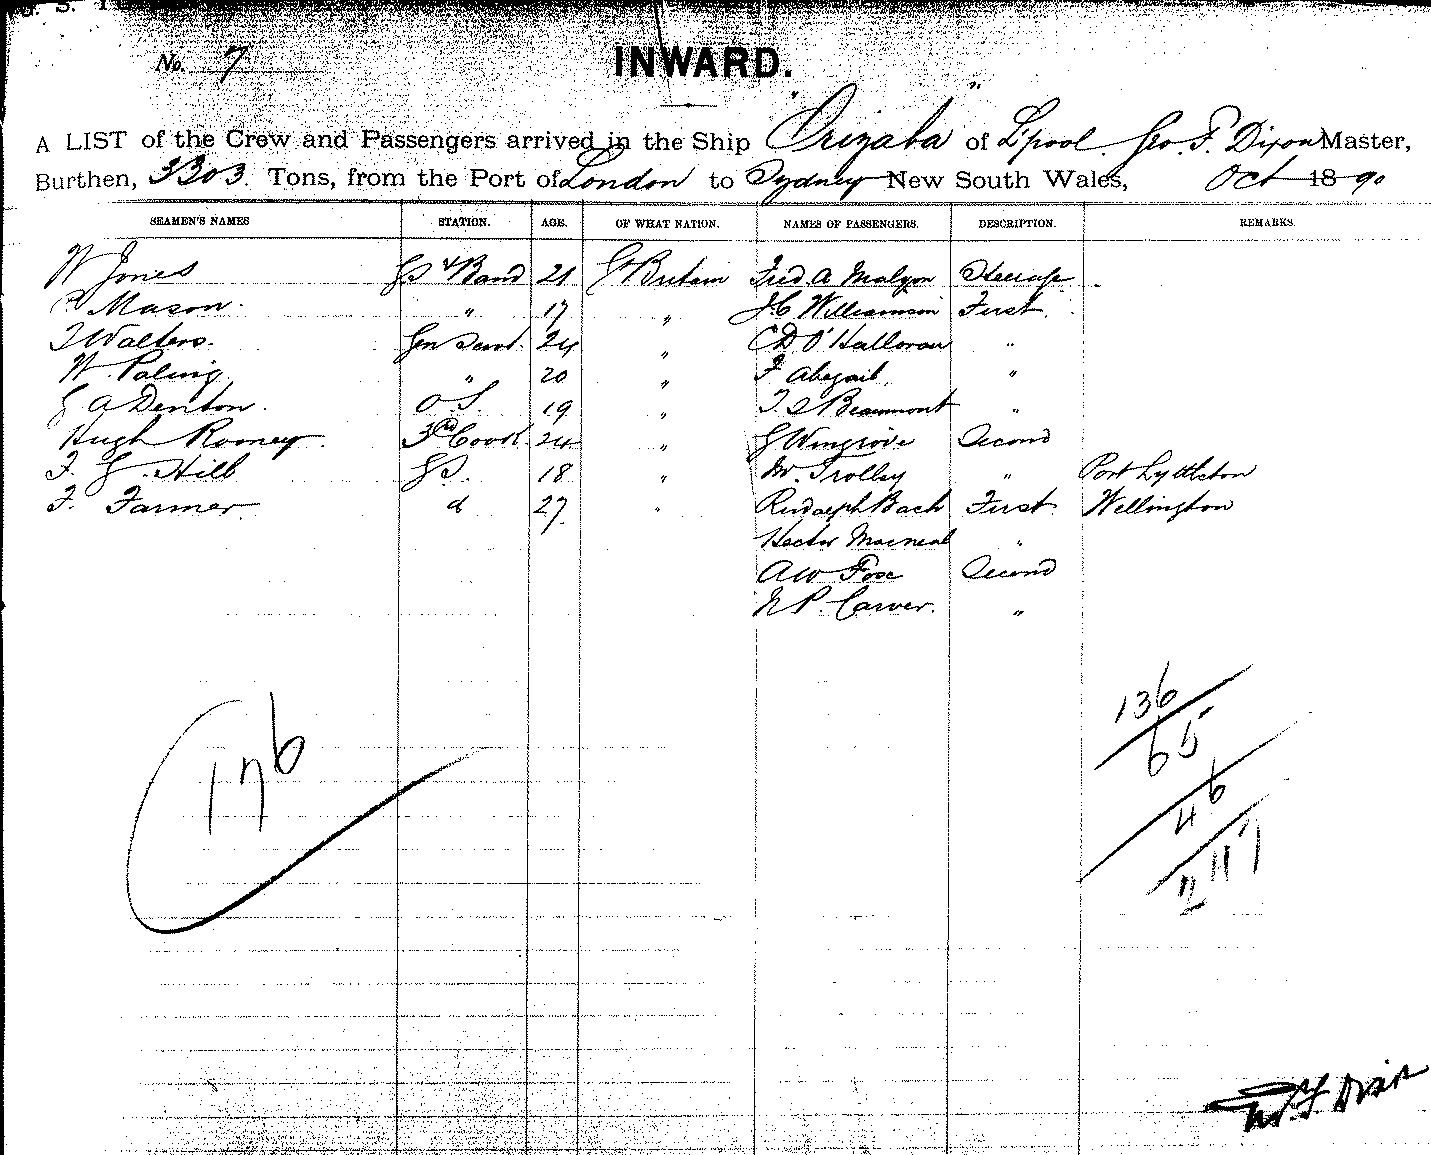 No. 7
INWARD.
A LIST of the Crew and Passengers arrived in the Ship "Orizaba" of L'pool Geo. F. Dixon Master,
Burthen, 3303 Tons, from the Port of London to Sydney New South Wales, Oct 1890
SEAMEN'S NAMES STATION. AGE. OF WHAT NATION. NAMES OF PASSENGERS. DESCRIPTION. REMARKS.
W Jones GS & Band 21 Gt Britain Fred A Malyon Steerage
Mason 17 " J C Williamson First
T Walters. Gen Servt. 24 " C D O'Halloran "
W. Paling " 20 " F Abegail "
G A Denton O S. 19 " T. S Beaumont "
Hugh Rooney 3rd Cook 24 " G Wingrove Second
F. G. Hill GS. 18 " W. Trolley " Port Lyttleton
F. Farmer 27 " Rudolph Bach First Wellington
Hector Macneal "
A W Fox Second
N P. Carver. "
176
136
65
46